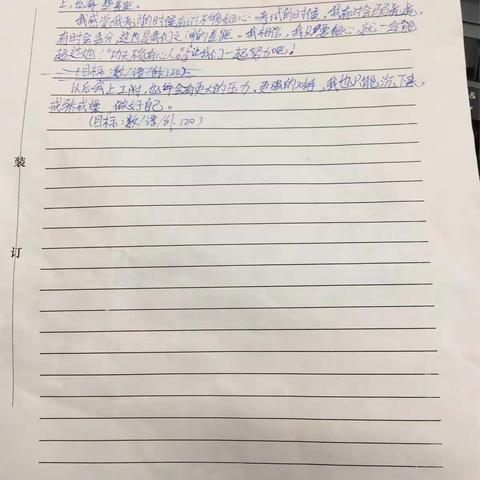 上,也有一些差距。
我感觉我考试的时候有时不够细心。考试的时候,我有时会
有时会丢分,这也是我们之间的差距。我相信,我只要细心,就一定能
超过她!"功夫不负有心人"。让我们一起努力吧!
(目标:数/语/外120)
以后我上了初,必许会有更大的压力、更强的对手,我也只能沉下来,
戒骄戒躁,做好自己。
(目标:数/语/外 120)
装
订